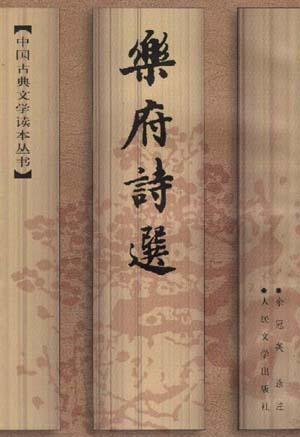 【中国古典文学读本丛书】
樂府詩選
●余冠英选注
●人民文学出版社